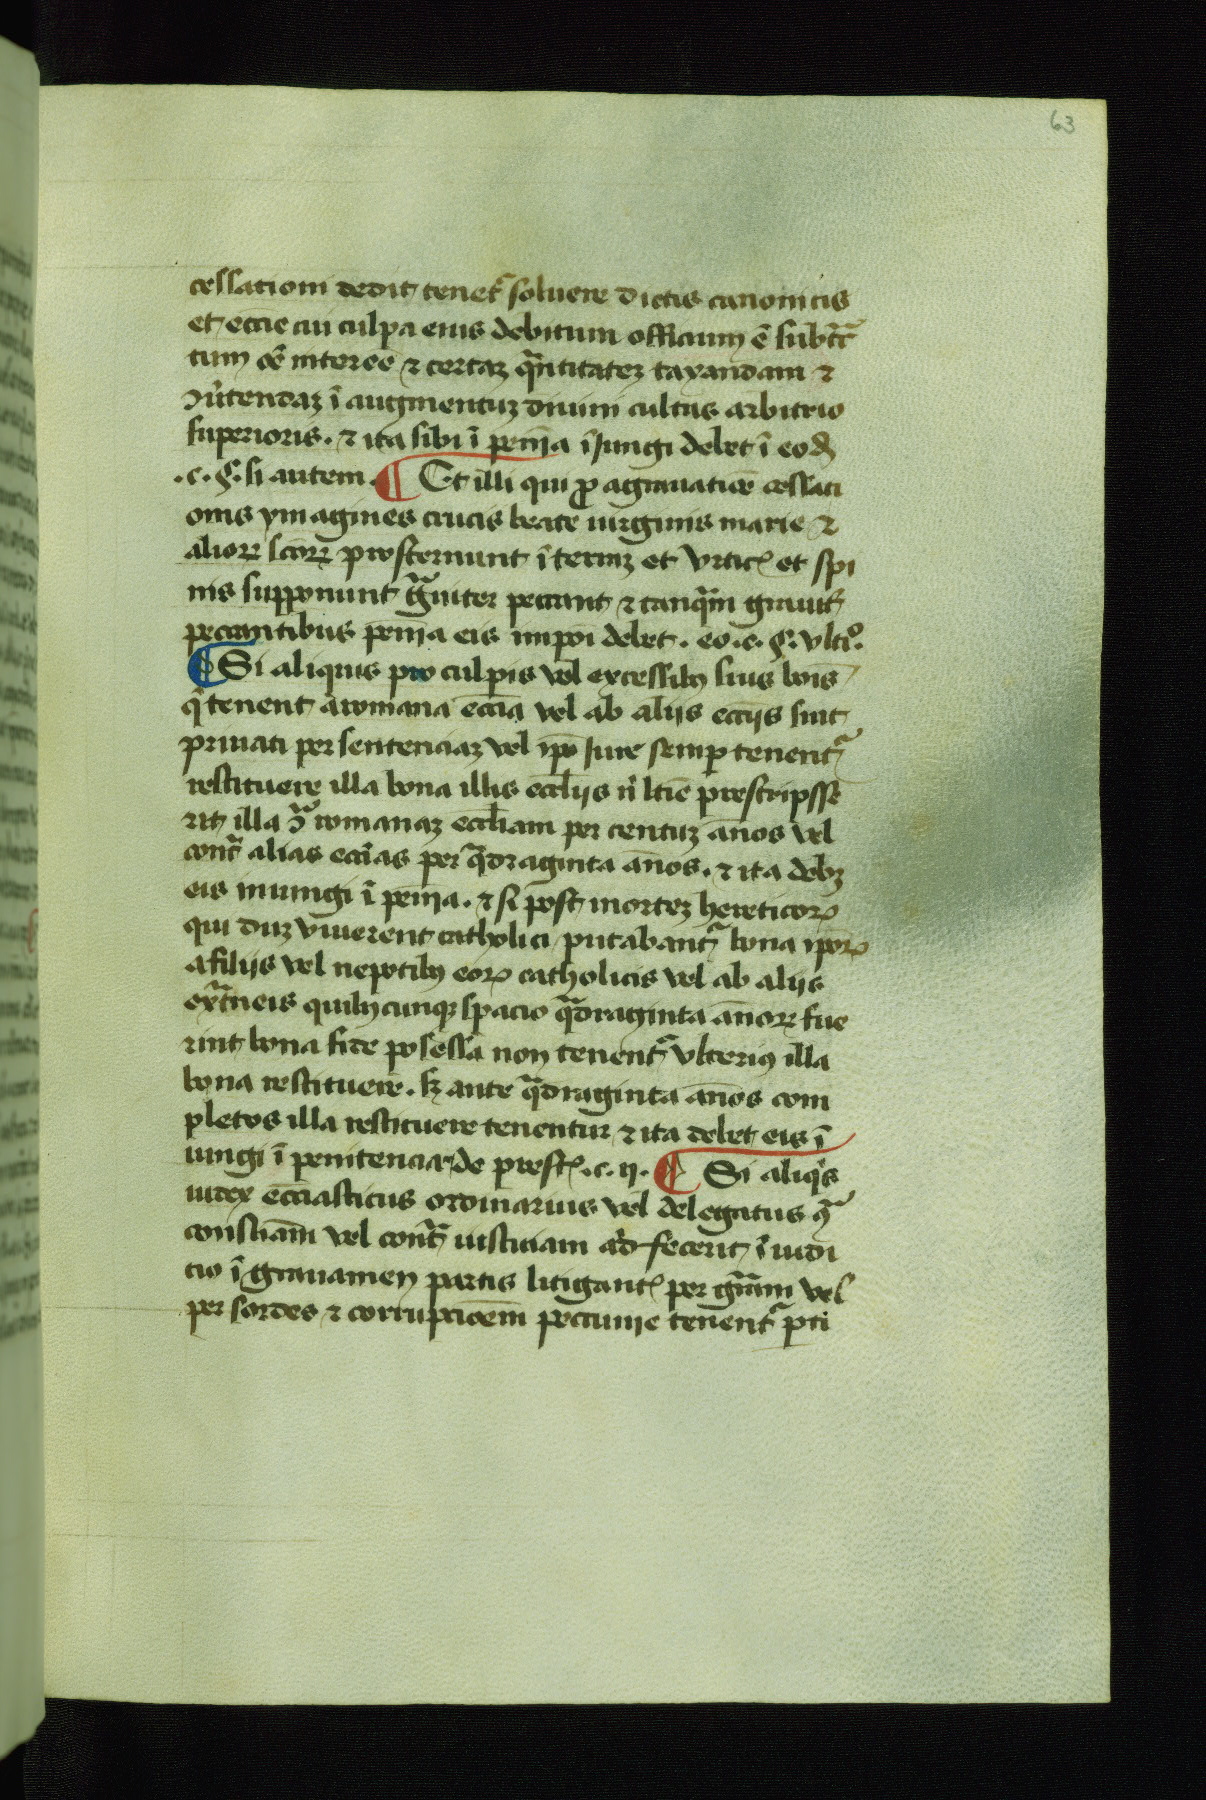 63
cessationi dedit tenet᷑ soluere dictis canonicis
et eccie cui culpa eius debitum officium ē subtᷓc
tum oē interee ⁊ certaꝫ qᷓntitateꝫ taxandam ⁊
ꝯu̓tendaꝫ ī augmentuꝫ diuini cultus arbitrio
superioris. ⁊ ita sibi ī penīa īiungi debet ī eod̄
.c. §. si autem. ¶ Et illi qui ꝓ agrauatiōe cessati
onis ymagines crucis beate uirginis marie ⁊
alioꝝ sc̄oꝝ prosternunt ī terraꝫ et vrticꝭ et spi
nis supponunt gᷓuiter peccant ⁊ tanqᷓm grauit᷑
peccantibus penīa eis imponi debet. eo. c. §. vltiº.
¶ Si aliquis pro culpis vel excessibꝰ suis bonis
q̄ tenent a romana ecc̄ia vel ab aliis ecc̄iis sint
priuati per sentenciaꝫ vel ip̄o iure semꝑ tenentᷓ
restituere illa bona illis eccl̄iis n̄ ltīe prescripsse
rit illa ꝯᷓ romanaꝫ eccl̄iam per centuꝫ annos vel
contᷓ alias ecc̄ias per qᷓdraginta annos. ⁊ ita debꝫ
eis iniungi ī penīa. ⁊ si post morteꝫ hereticoꝝ
qui duꝫ viuerent catholici putabantᷓ bona ip̄oꝝ
a filiis vel nepotibꝰ eoꝝ catholicis vel ab aliis
extᷓneis quibꝰcunqꝫ spacio qᷓdraginta annoꝝ fue
rint bona fide posessa non tenentᷓ vlteriꝰ illa
bona restituere. sꝫ ante qᷓdraginta annos com
pletos illa restituere tenentur ⁊ ita debet eis ī
iungi ī penitencia de prescꝭ. c. ii. ¶ Si aliqͥs
iudex ecc̄iasticus ordinarius vel delegatus ꝯᷓ
consciam̄ vel contᷓ iusticiam aͥd fecerit ī iudi
cio ī grauamen partis litigantꝭ per grām vel
per sordes ⁊ corrupcioēm pecunie tenentᷓ pti